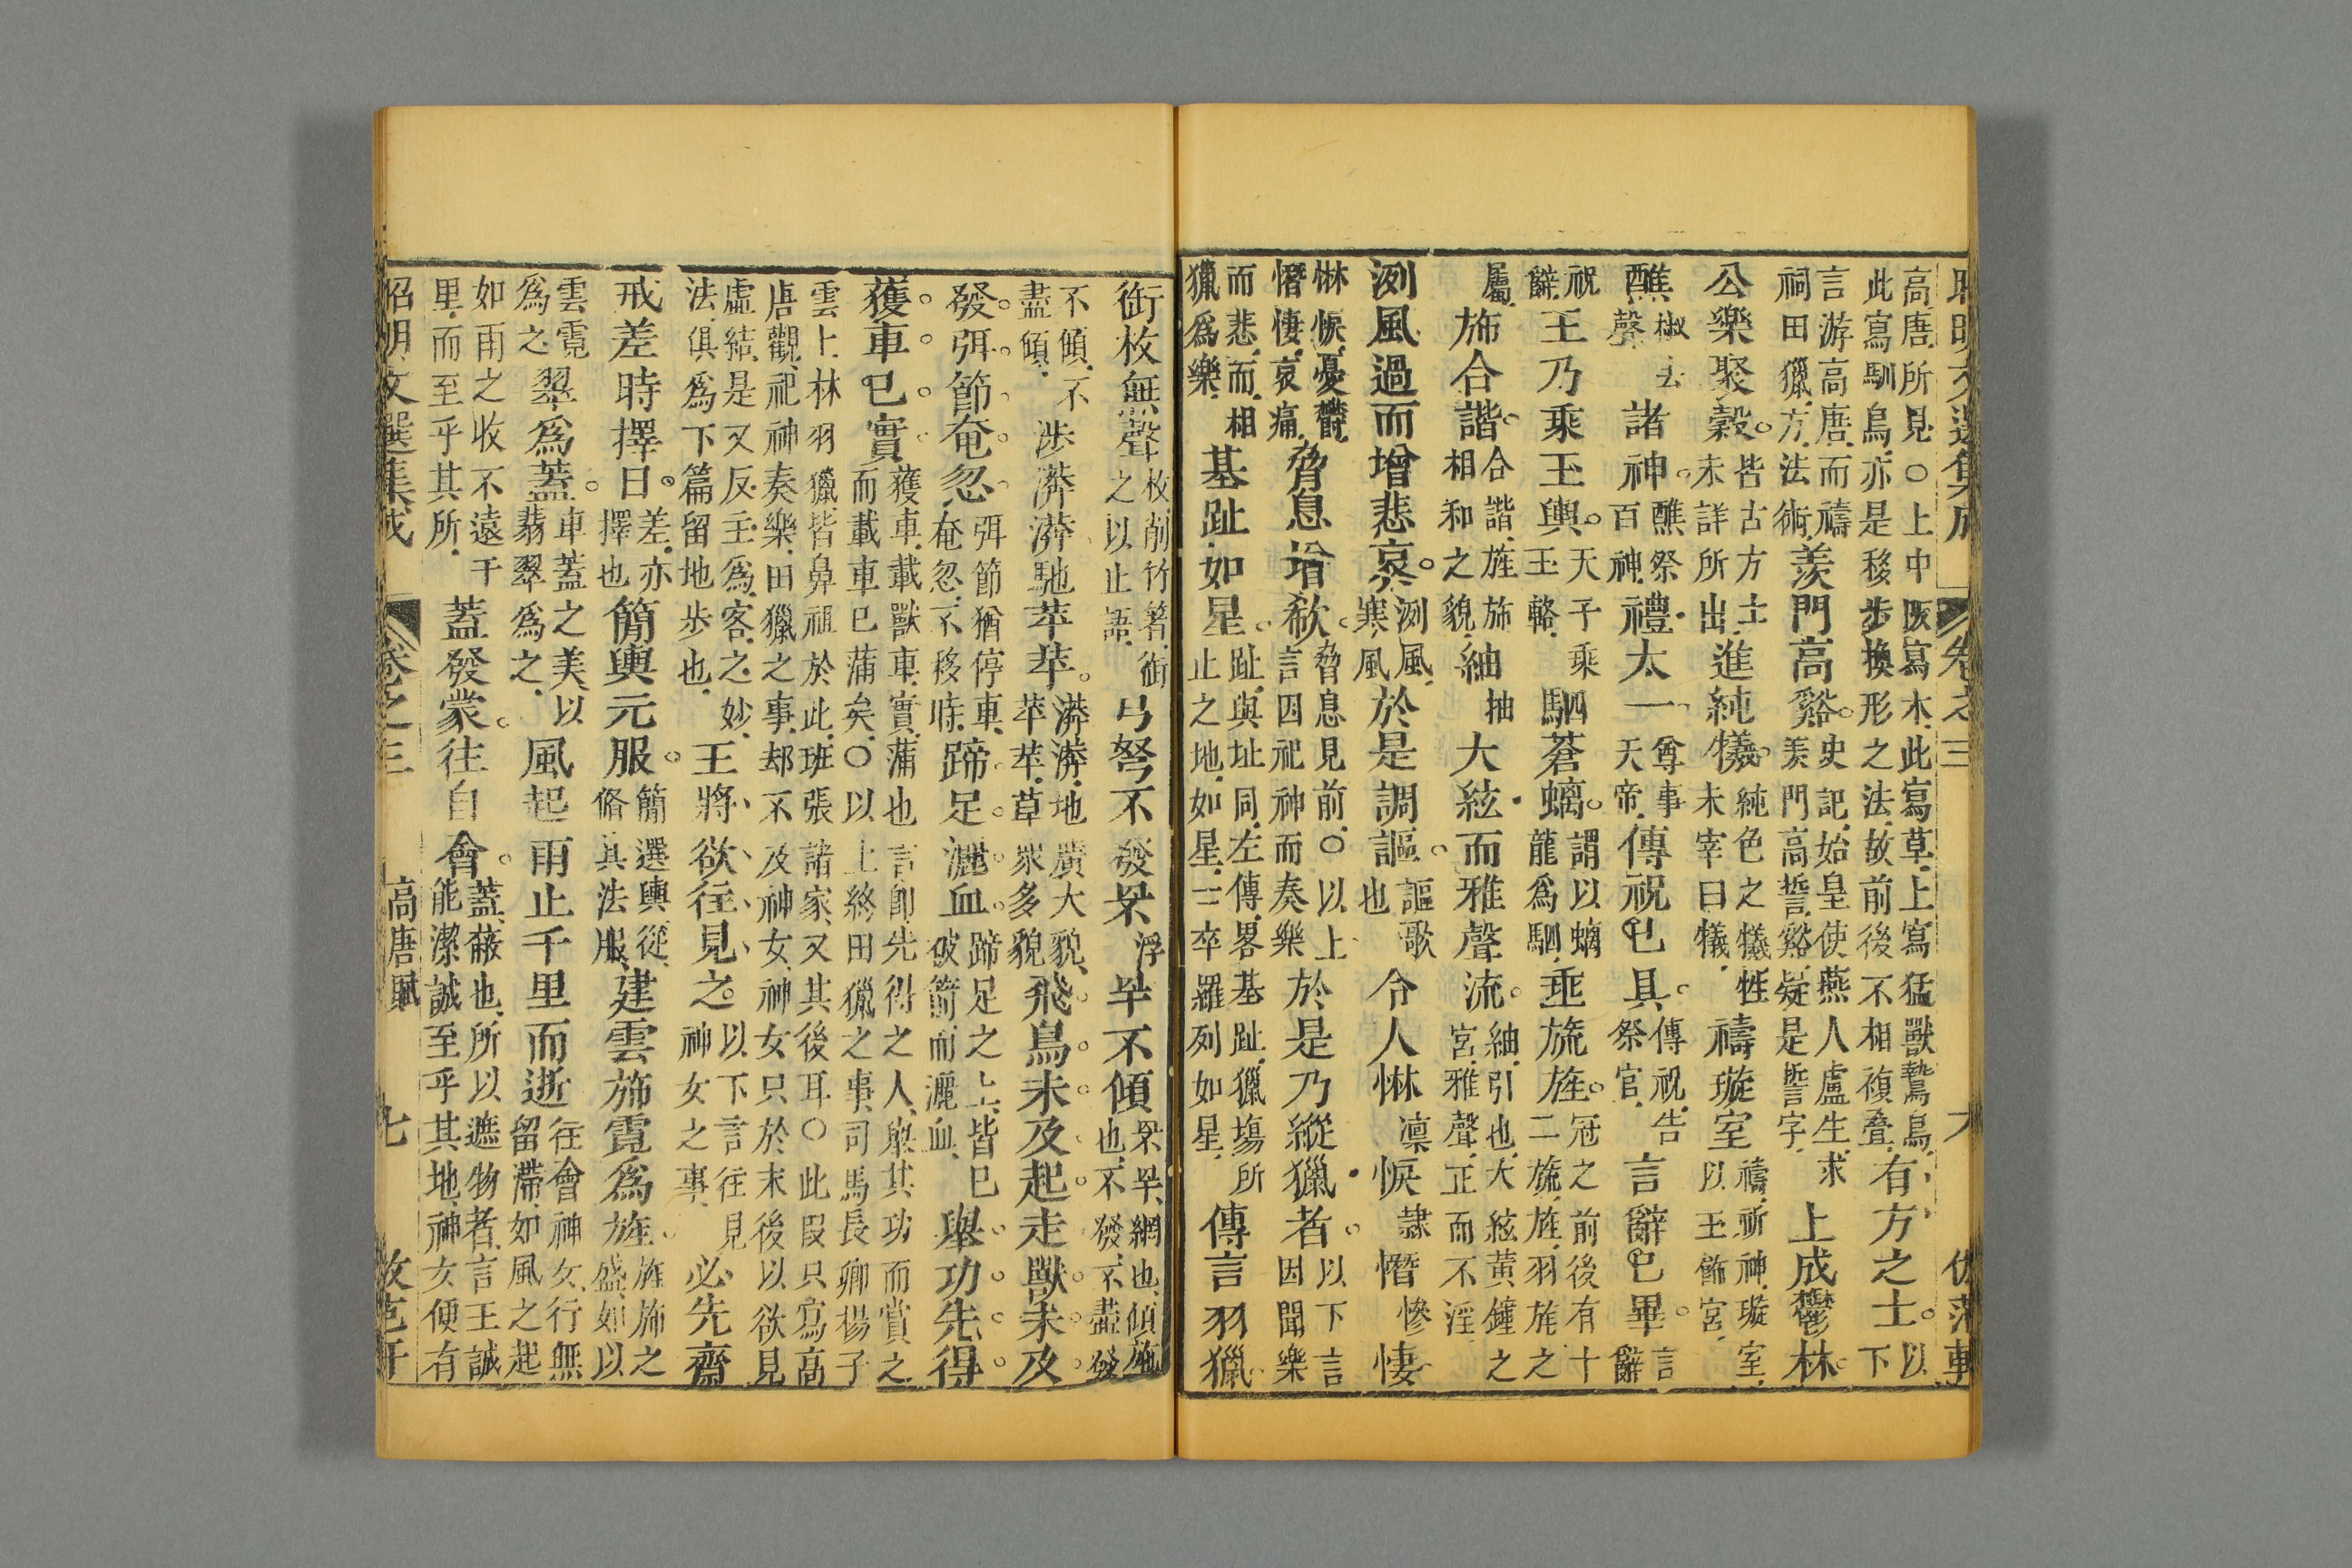 昭明文選集成 卷之三 六 倣范軒
高唐所見○上中叚寫木此寫草上寫猛獸鷙鳥
此寫馴鳥亦是移步換形之法故前後不相複疊有方之士以下
言游高唐而禱
祠田獵方法術羨門高谿史記始皇使燕人盧生求
羨門高誓谿疑是誓字上成鬱林
公樂聚穀皆古方士
未詳所出進純犧純色之犧牲
未宰曰犧禱璇室禱祈神璇室
以玉飾宮
醮椒去
聲諸神醮祭
百神禮太一尊事
天帝傳祝已具傳祝告
祭官言辭已畢言
辭
祝
辭王乃乘玉輿天子乘
玉輅駟蒼螭謂以螭
龍爲駟垂旒旌冠之前後有十
二旒旌羽旄之
屬旆合諧合諧旌旆
相和之貌紬抽大絃而雅聲流紬引也大絃黃鐘之
宮雅聲正而不淫
洌風過而增悲哀洌風
寒風於是調謳謳歌
也令人惏凛悷隷憯慘悽
惏悷憂鬱
憯悽哀痛脅息增欷脅息見前○以上
言因祀神而奏樂於是乃縱獵者以下言
因聞樂
而悲而相
獵爲樂基趾如星趾與址同左傳畧基趾獵塲所
止之地如星一卒羅列如星傳言羽獵
銜枚無聲枚削竹箸銜
之以止語弓弩不發罘浮罕不傾罘罕網也傾施
也不發不盡發
不傾不
盡傾涉漭漭馳苹苹漭漭地廣大貌
苹苹草衆多貌飛鳥未及起走獸未及
發弭節奄忽弭節猶停車
奄忽不移時蹄足灑血蹄足之上皆已
破箭而灑血舉功先得
獲車已實獲車載獸車實蒲也言卽先得之人與其功而賞之
而載車已蒲矣○以上終田獵之事司馬長卿揚子
雲上林羽獵皆鼻祖於此班張諸家又其後耳○此叚只寫高
唐觀祀神奏樂田獵之事却不及神女神女只於末後以欲見
虛結是又反主爲客之妙
法俱爲下篇留地步也王將欲往見之以下言往見
神女之事必先齋
戒差時擇日差亦
擇也簡輿元服簡選輿從
脩其法服建雲旆霓爲旌旌旆之
盛如以
雲霓
爲之翠爲蓋車蓋之美以
翡翠爲之風起雨止千里而逝往會神女行無
留滯如風之起
如雨之收不遠千
里而至乎其所蓋發蒙往自會蓋蔽也所以遮物者言王誠
能潔誠至乎其地神女便有
昭明文選集成 卷之三 高唐賦 七 倣范軒